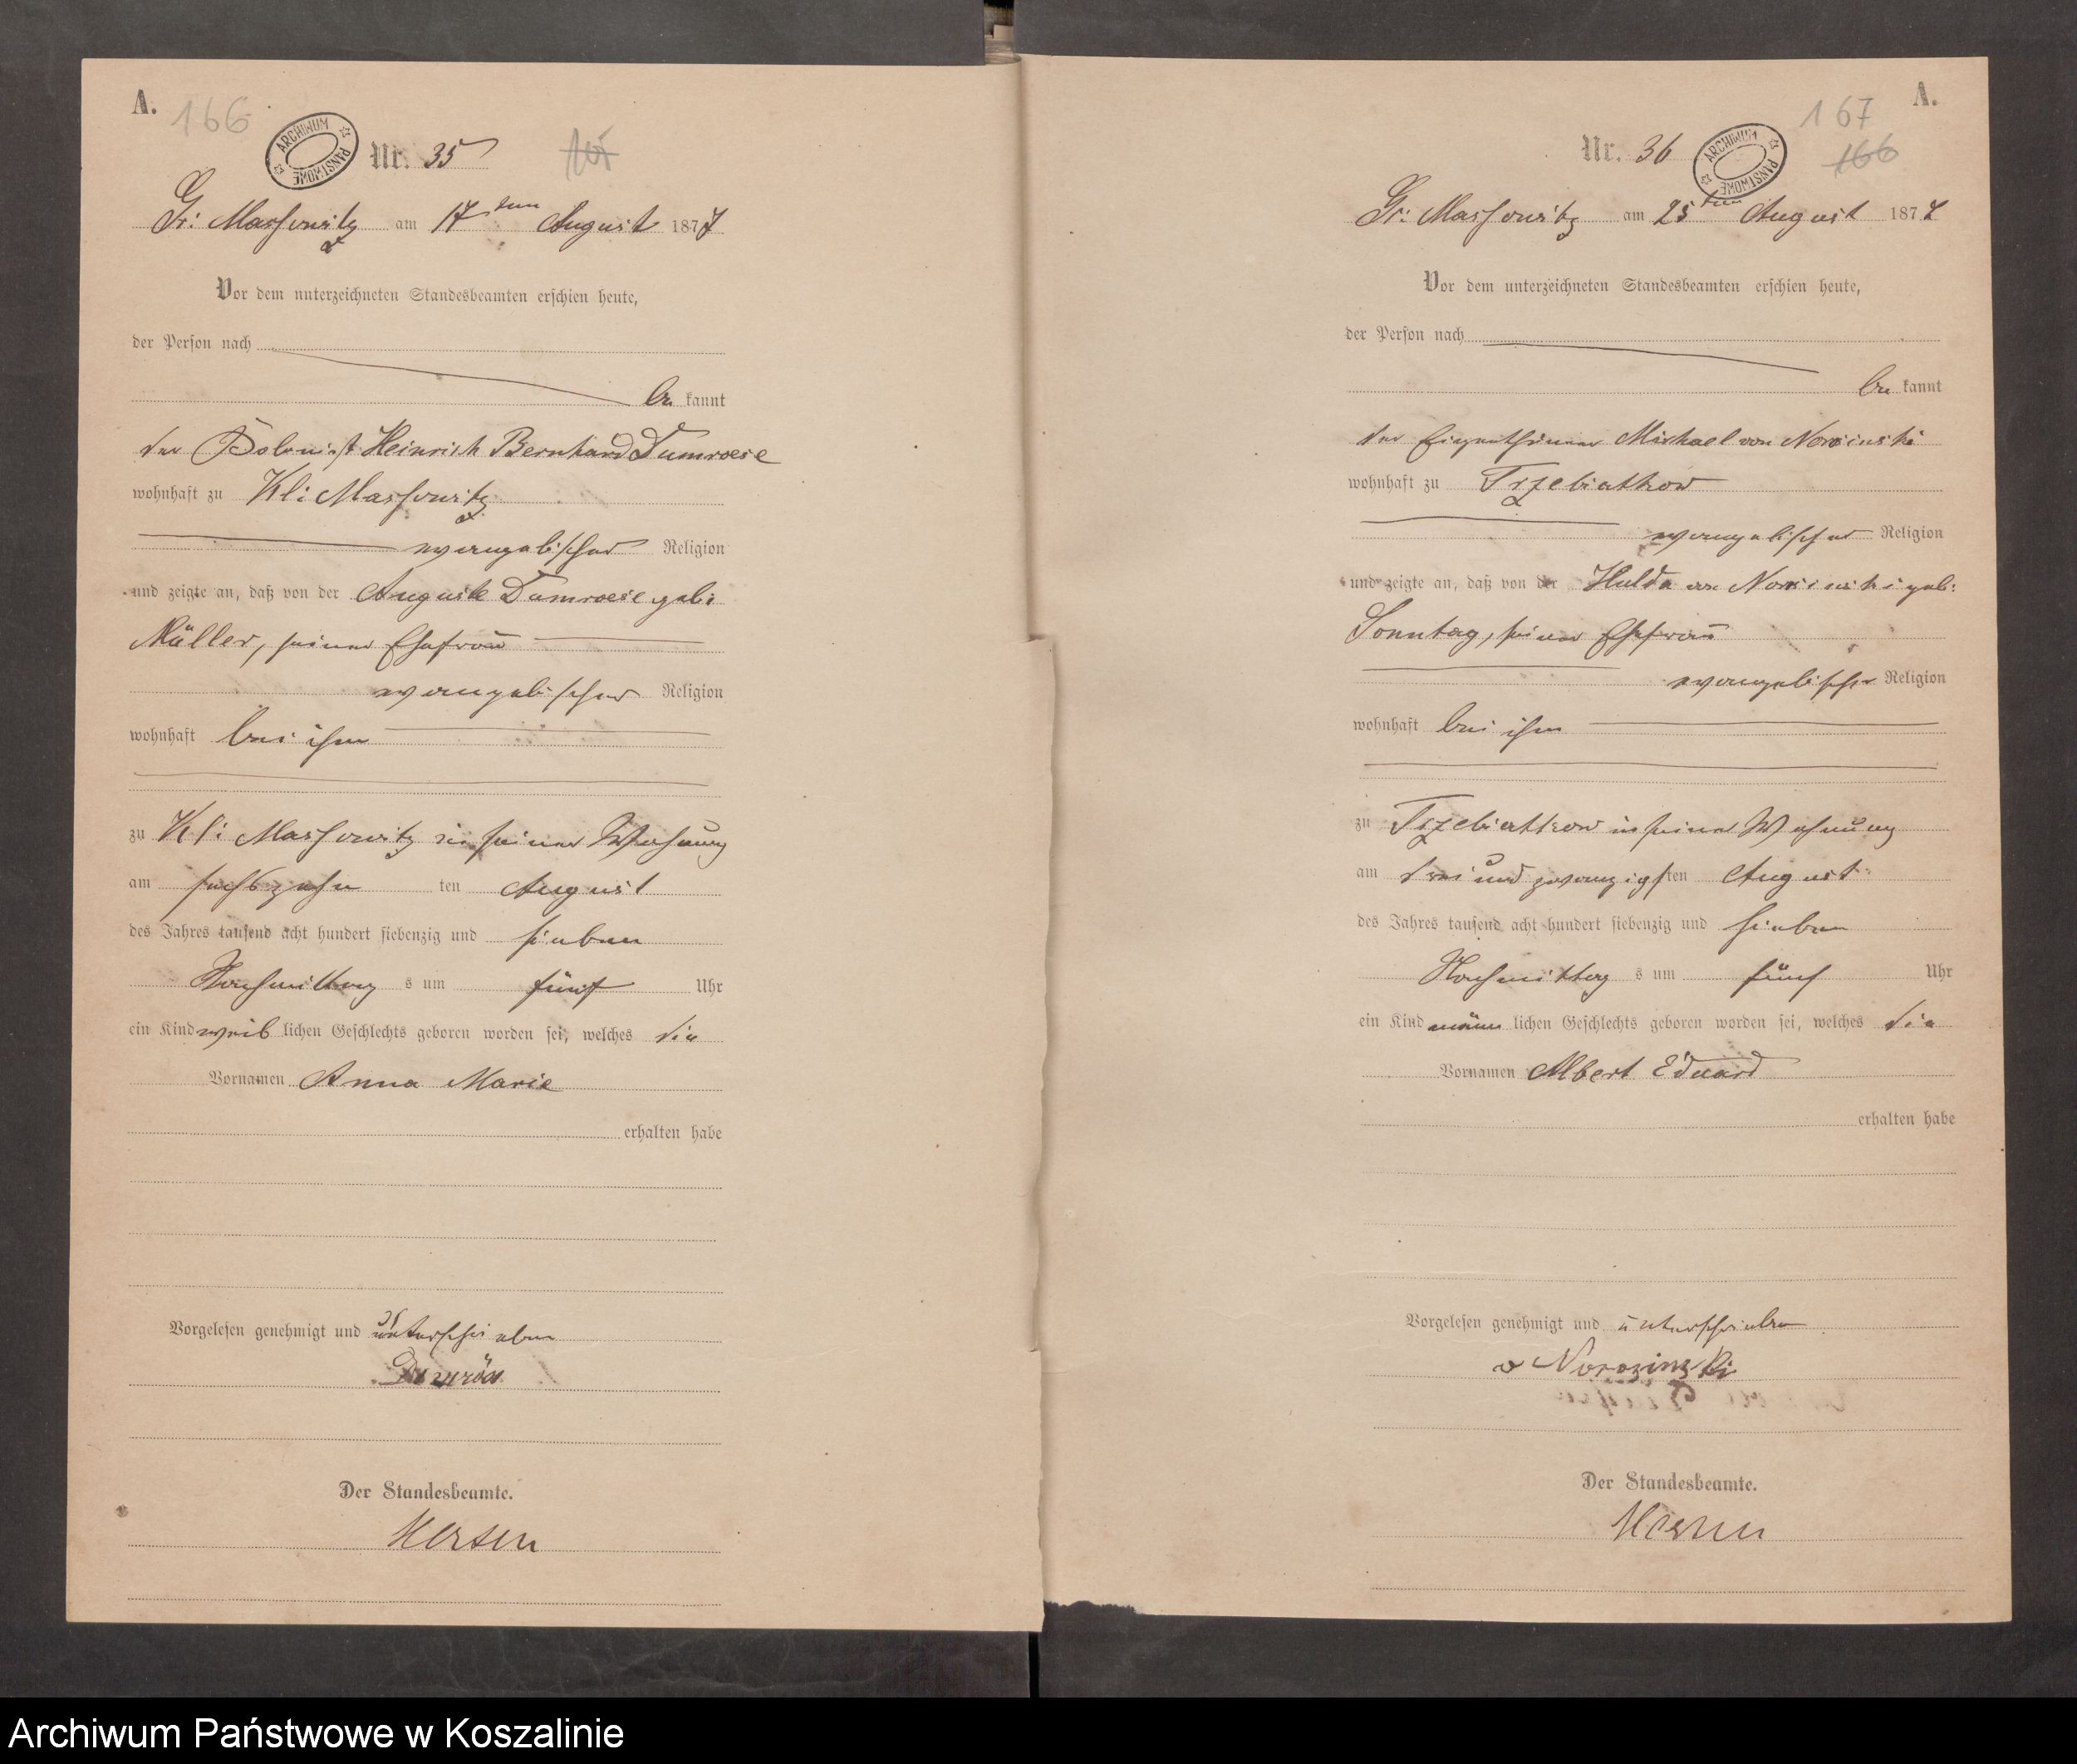 A.
166
ARCHIWUM PAŃSTWOWE
Nr. 35
Gr: Massowitz am 17ten August 1877
Vor dem unterzeichneten Standesbeamten erschien heute,
der Person nach
be kannt
der Kolonist Heinrich Bernhard Dumroese
wohnhaft zu Kl: Massowitz
evangelischer Religion
und zeigte an, daß von der Auguste Dumroese geb:
Müller, seiner Ehefrau
evangelischer Religion
wohnhaft bei ihm
zu Kl: Massowitz in seiner Wohnung
am sechszehn ten August
des Jahres tausend acht hundert siebenzig und sieben
Nachmittag s um fünf Uhr
ein Kind weib lichen Geschlechts geboren worden sei, welches die
Vornamen Anna Marie
erhalten habe
Vorgelesen genehmigt und unterschrieben
Der Standesbeamte.
A.
167
166
Nr. 36
ARCHIWUM PAŃSTWOWE
Gr: Massowitz am 25ten August 1877
Vor dem unterzeichneten Standesbeamten erschien heute,
der Person nach
be kannt
der Eigenthümer Michael von
wohnhaft zu Trzebiatkow
evangelischer Religion
und zeigte an, daß von der Hulda von geb:
Sonntag, seiner Ehefrau
evangelischer Religion
wohnhaft bei ihm
zu Trzebiatkow in seiner Wohnung
am drei und zwanzigsten August
des Jahres tausend acht hundert siebenzig und sieben
Nachmittag s um fünf Uhr
ein Kind männ lichen Geschlechts geboren worden sei, welches die
Vornamen Albert Eduard
erhalten habe
Vorgelesen genehmigt und unterschrieben
v
Der Standesbeamte.
Archiwum Państwowe w Koszalinie